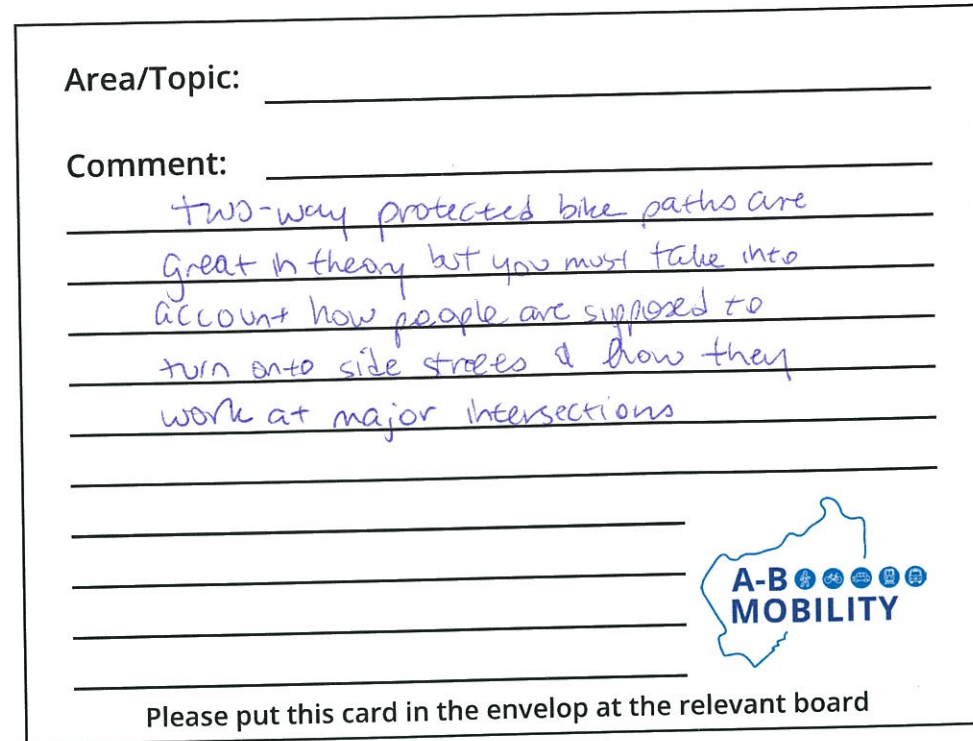 Area/Topic:
Comment:
two-way protected bike paths are
great in theory but you must take into
account how people are supposed to
turn onto side streets & how they
work at major intersections
A-B
MOBILITY
Please put this card in the envelop at the relevant board